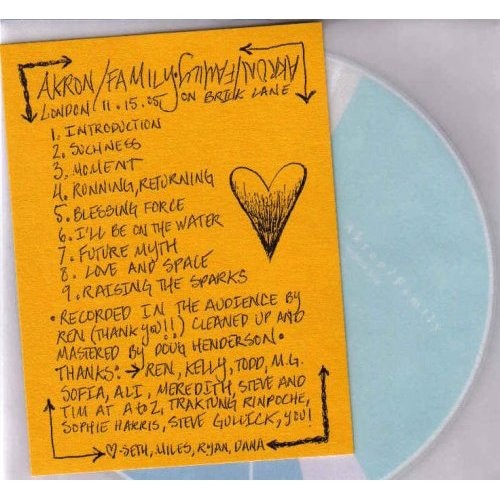 AKRON/FAMILY AKRON/FAMILY
LONDON 11.15.05 ON BRICK LANE
1. INTRODUCTION
2. SUCHNESS
3. MOMENT
4. RUNNING, RETURNING
5. BLESSING FORCE
6. I'LL BE ON THE WATER
7. FUTURE MYTH
8. LOVE AND SPACE
9. RAISING THE SPARKS
• RECORDED IN THE AUDIENCE BY
REN (THANK YOU!!) CLEANED UP AND
MASTERED BY DOUG HENDERSON •
THANKS: → REN, KELLY, TODD, M.G.
SOFIA, ALI, MEREDITH, STEVE AND
TIM AT A to Z, TRAKTUNG RINPOCHE,
SOPHIE HARRIS, STEVE GULLICK, YOU!
♡ - SETH, MILES, RYAN, DANA
Akron/Family